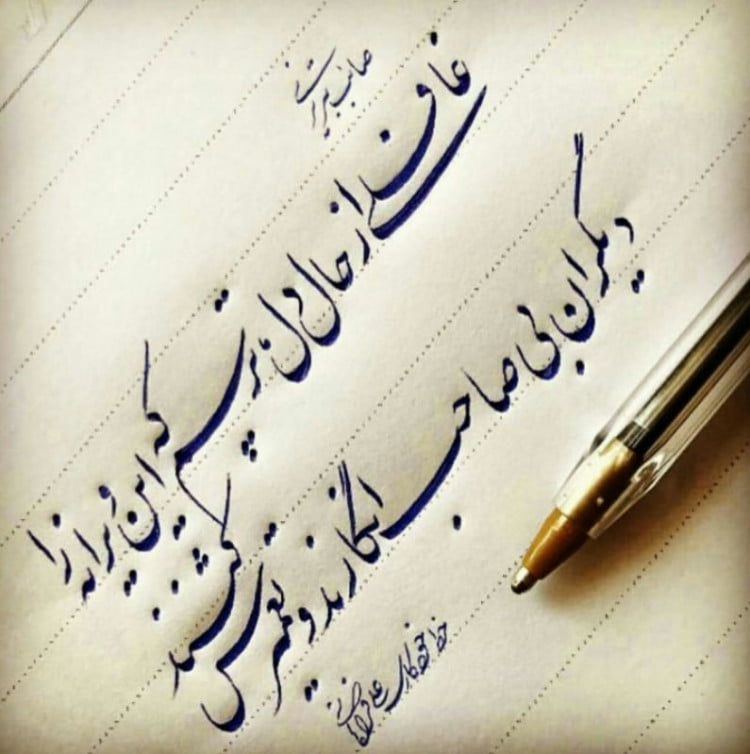 صائب تبریزی
غافلی از حال دل، ترسم که این ویرانه را
دیگران بی صاحب انگارند و تعمیرش کنند